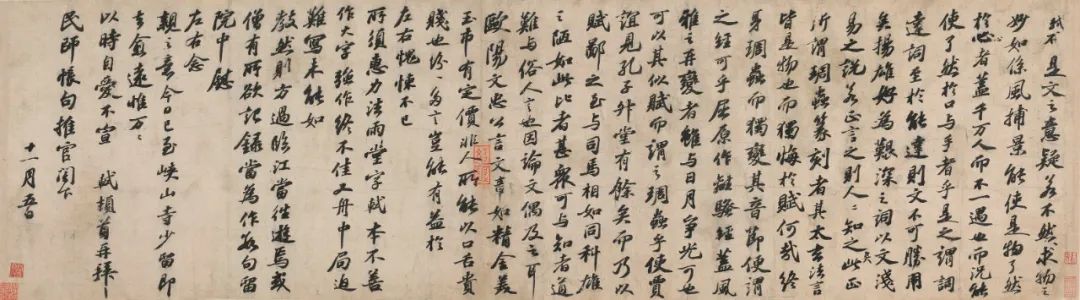 軾不是文之意疑若不然求物之
妙如係風捕景能使是物了然
於心者蓋千万人而不一遇也而況能
使了然於口与手者乎是之謂詞
達詞至於能達則文不可勝用
矣揚雄好為艱深之詞以文淺
易之說若正言之則人人知之矣此正
所謂琱蟲篆刻者其太玄法言
皆是物也而獨悔於賦何哉終
身琱蟲而獨變其音節便謂
之經可乎屈原作離騷經蓋風
雅之再變者雖与日月爭光可也
可以其似賦而謂之琱蟲乎使賈
誼見孔子升堂有餘矣而乃以
賦鄙之至与司馬相如同科雄
之陋如此比者甚衆可与知者道
難与俗人言也因論文偶及之耳
歐陽文忠公言文章如精金美
玉市有定價非人所能以口舌貴
賤也紛〻多言豈能有益於
左右愧悚不已
所須惠力法雨堂字軾本不善
作大字強作終不佳又舟中局迫
難寫未能如
教然則方過臨江當往遊焉或
僧有所欲記録當為作數句留
院中慰
左右念
親之意今日已至峽山寺少留即
去愈遠惟万〻
以時自愛不宣 軾頓首再拜
民師帳句推官閣下
十一月五日